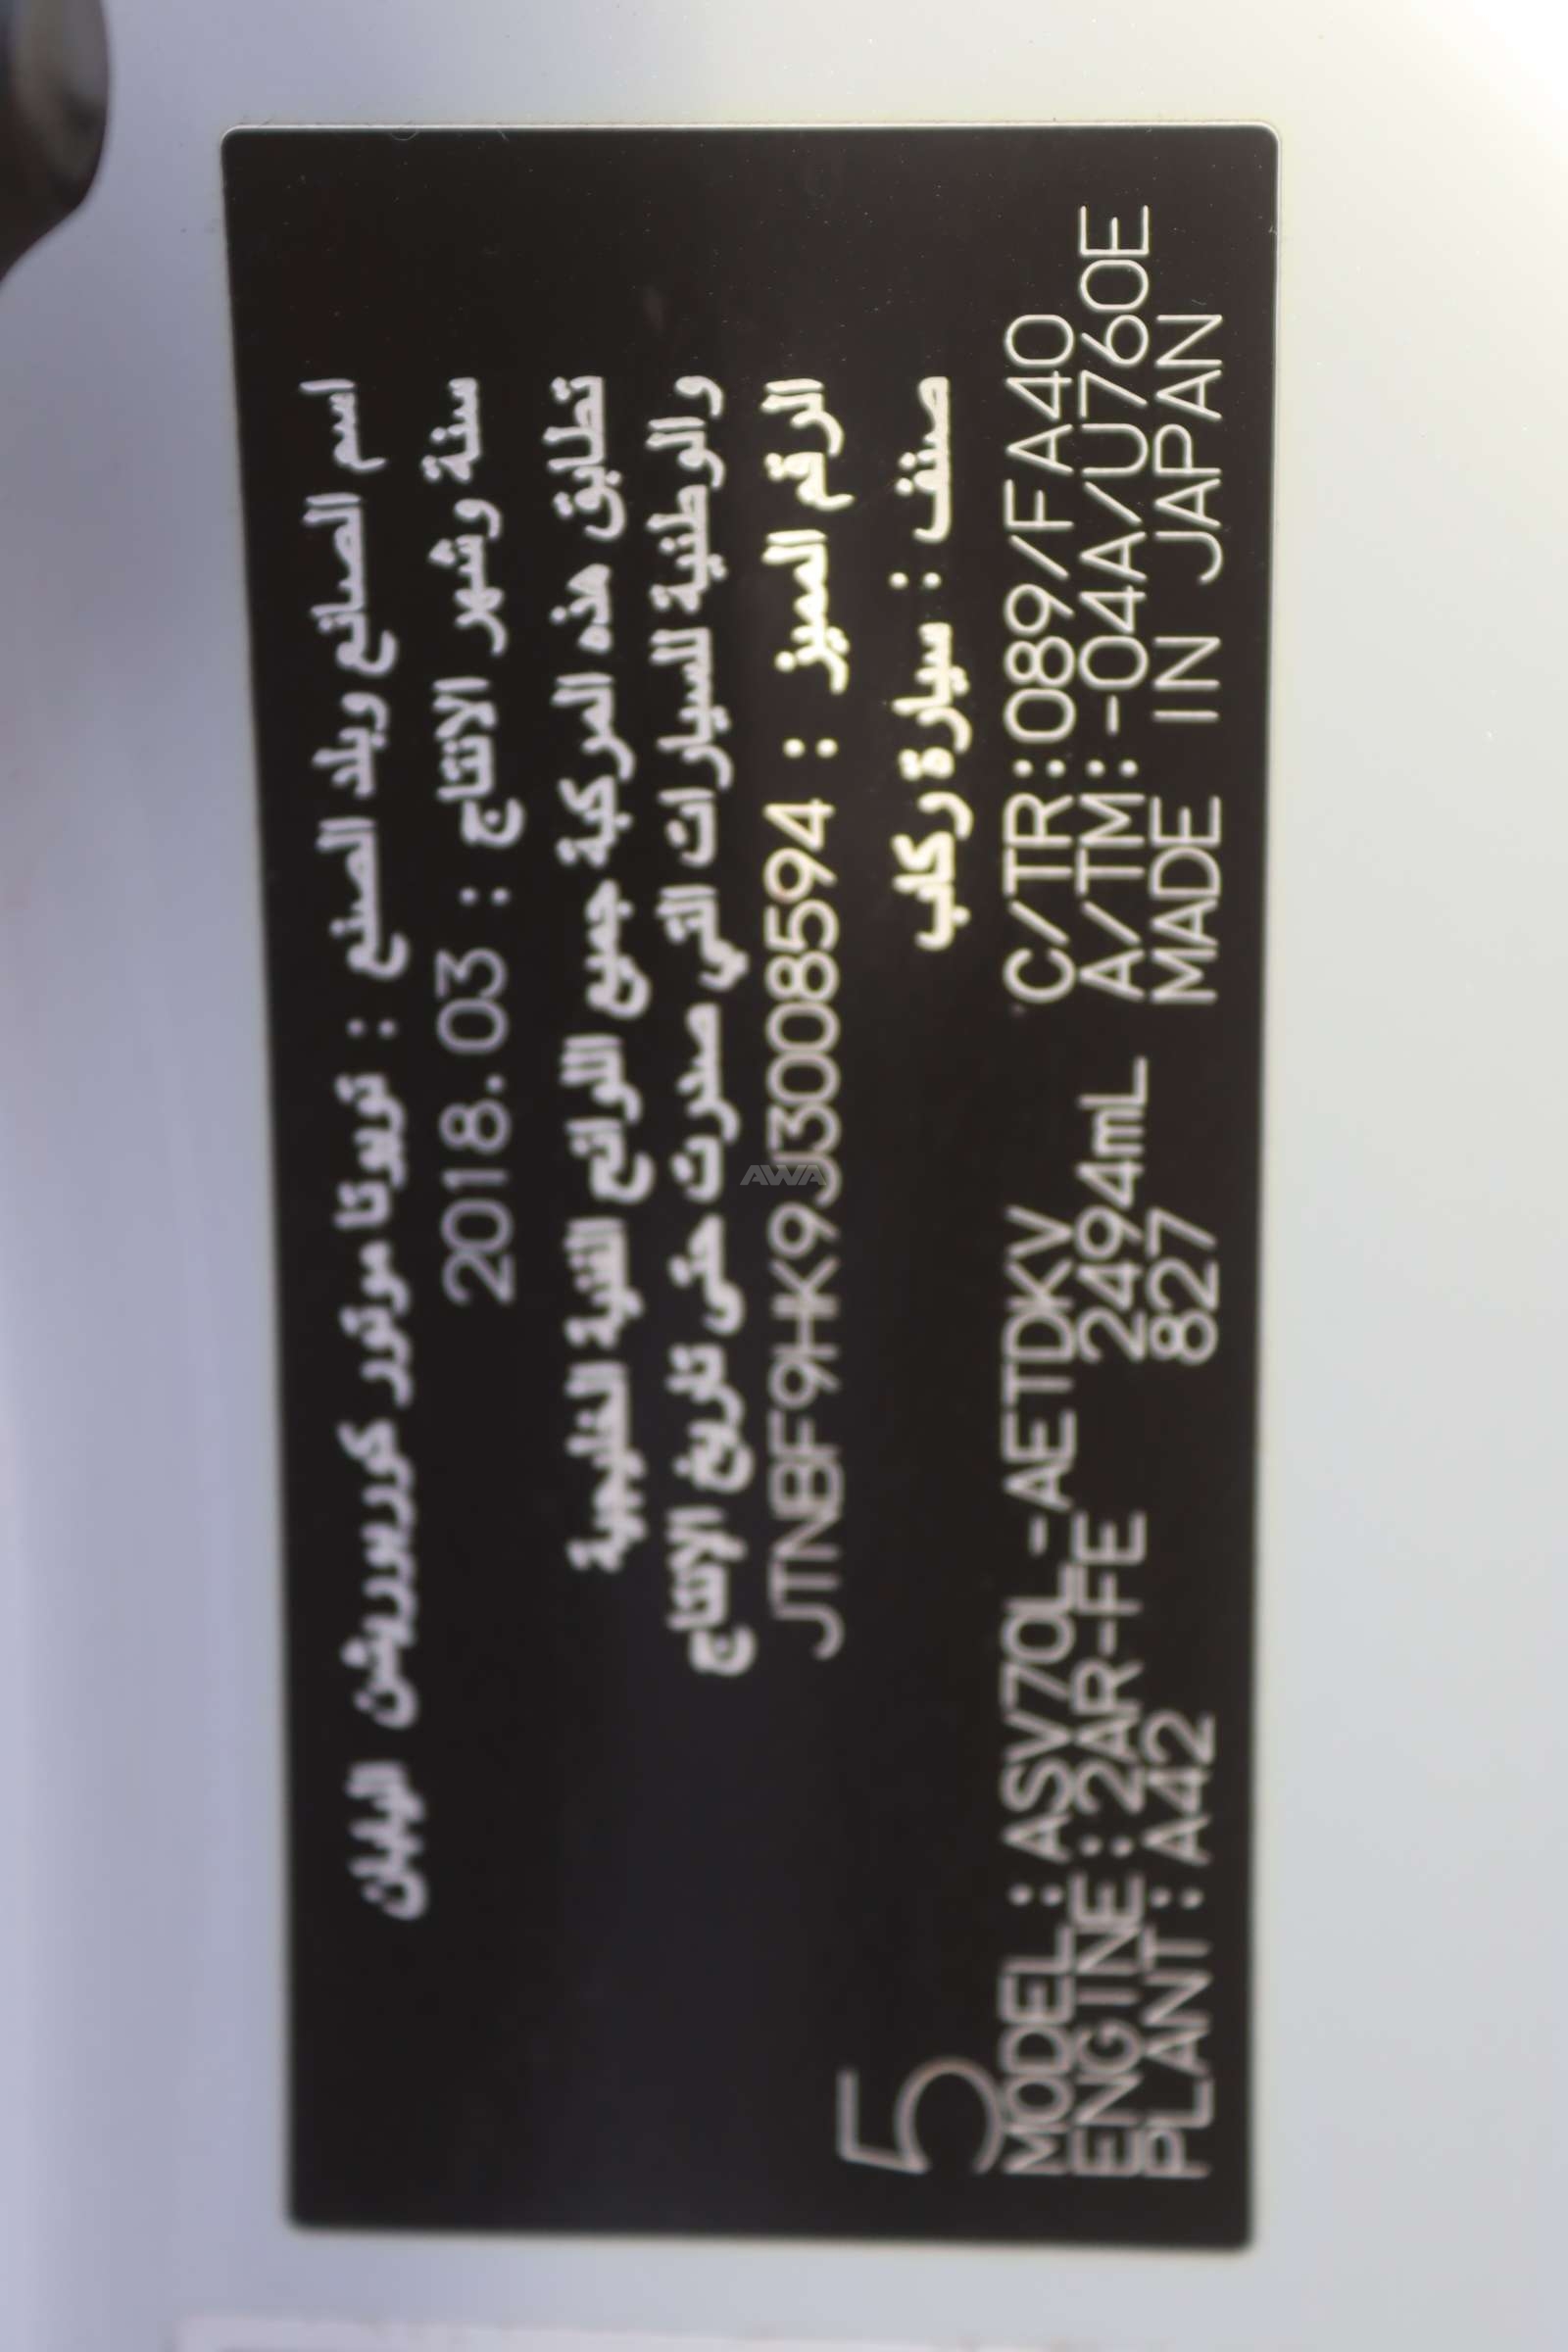 اسم الصانع وبلد الصنع : تويوتا موتور كوربوريشن اليابان
سنة وشهر الانتاج : 2018.03
تطابق هذه المركبة جميع اللوائح الفنية الخليجية
و الوطنية للسيارات التي صدرت حتى تاريخ الانتاج
الرقم المميز : JTNBF9HK9J3008594
صنف : سيارة ركاب
5
MODEL : ASV70L-AETDKV C/TR:089/FA40
ENGINE : 2AR-FE 2494mL A/TM:-04A/U760E
PLANT : A42 827 MADE IN JAPAN
AWA